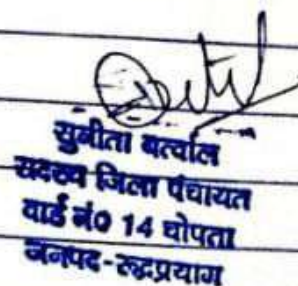 सुनीता बर्त्वाल
सदस्य जिला पंचायत
वार्ड नं0 14 चोपता
जनपद-रूद्रप्रयाग